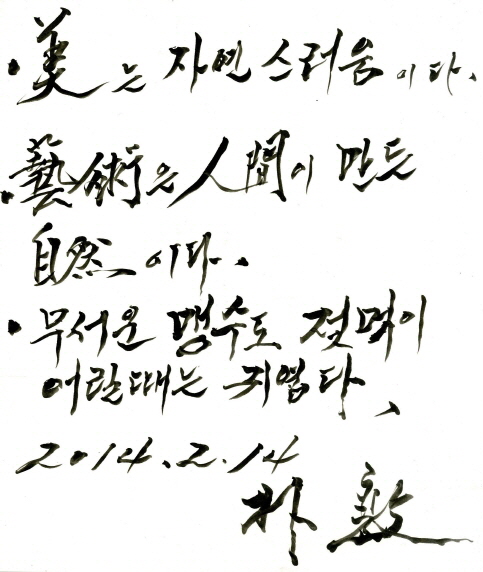 · 美는 자연스러움이다.
· 藝術은 人間이 만든
自然이다.
· 무서운 맹수도 젖먹이
어릴때는 귀엽다.
2014.2.14
朴 敦